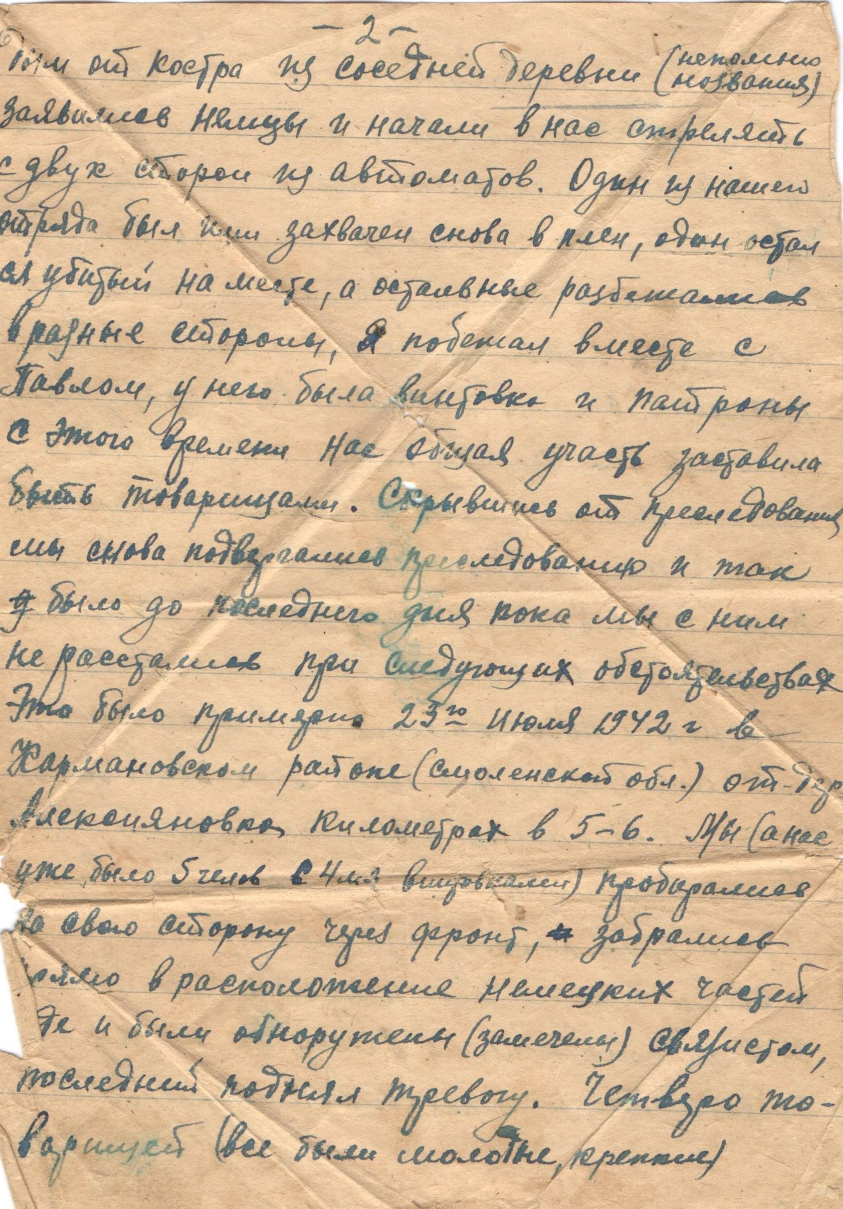 -2-
дым от костра из соседней деревни (непомню
названия)
заявились немцы и начали в нас стрелять
с двух сторон из автоматов. Один из нашего
отряда был ими захвачен снова в плен, один остал
ся убитый на месте, а остальные разбежались
в разные стороны, Я побежал вместе с
Павлом, у него была винтовка и патроны
с этого времени нас общая участь заставила
быть товарищами. Скрывшись от преследования
мы снова подвергались преследованию и так
было до последнего дня пока мы с ним
не расстались при следующих обстоятельствах
Это было примерно 23го июля 1942 г в
Кармановском районе (смоленской обл.) от дер
Алексияновка километрах в 5-6. Мы (а нас
уже было 5 челов с 4мя винтовками) пробирались
на свою сторону через фронт, забрались
прямо в расположение немецких частей
где и были обноружены (замечены) связистом,
последний поднял тревогу. Четверо то-
варищей (все были молодые, крепкие)